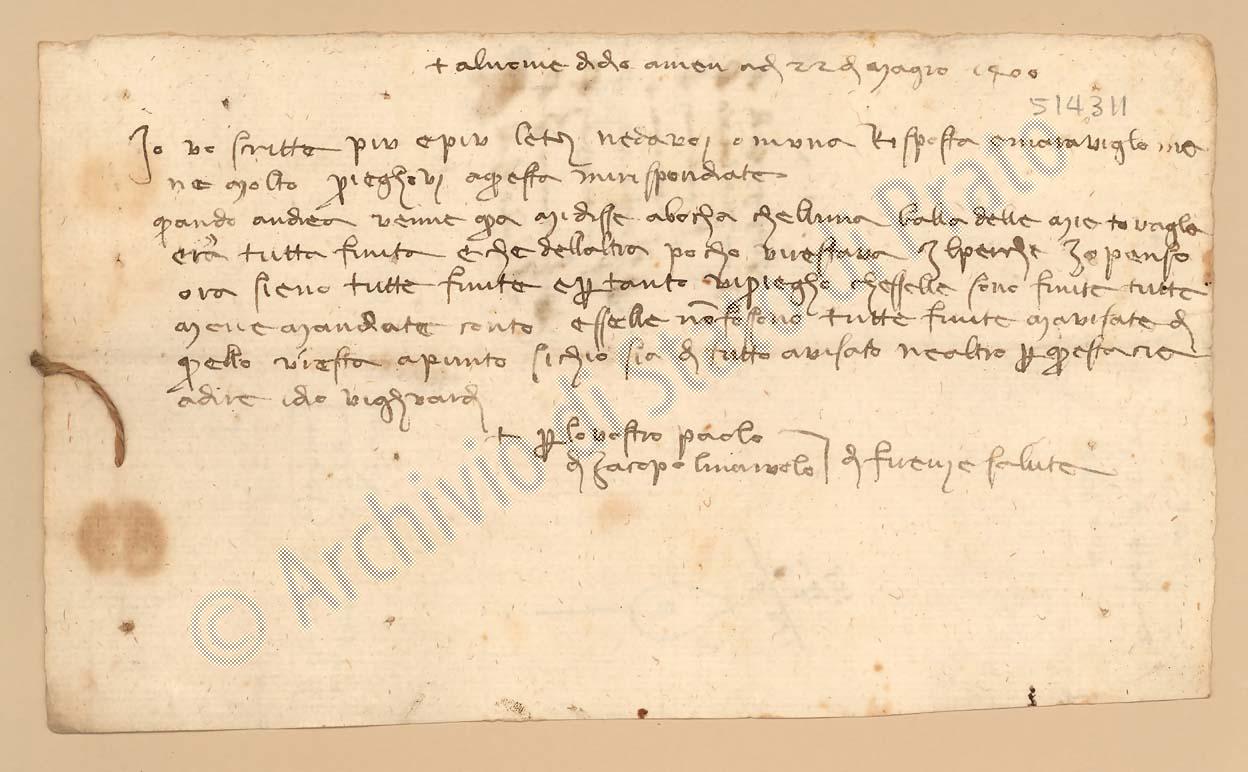 + alnome didio amen adi 22 di magio 1400
514311
Io vo scritto piu e piu letere ne davoi o niuna risposta e maraviglomene
ne molto prieghovi a questa mi rispondiate
quando andrea venne qua mi disse abocha chelluna balla delle mie tovagle
era tutta finita e che dellaltra pocho vi restava il perche Io penso
ora sieno tutte finite e per tanto vi priegho chesselle sono finite tutte
me ne mandiate conto e sselle non fosono tutte finite mavisate di
quello vi resta apunto sichio sia di tutto avisato ne altro per questa cie
a dire idio vi ghuardi
+ per lo vostro paolo
di Iacopo di firenze salute
© Archivio di Stato di Prato